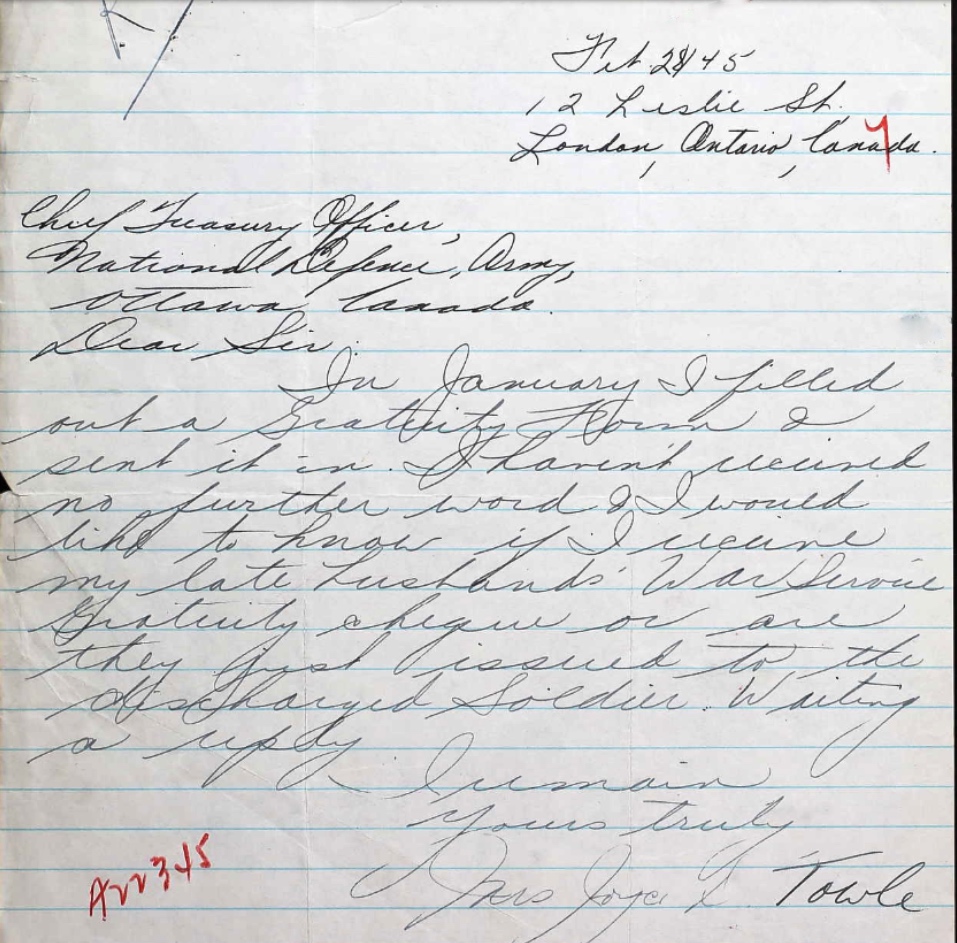 Feb. 28/45
12 Leslie St.
London, Ontario, Canada.
Chief Treasury Officer,
National Defence, Army,
Ottawa, Canada.
Dear Sir.
In January I filled
out a Gratuity Form &
sent it in. I haven't received
no further word & I would
like to know if I receive
my late husbands' War Service
Gratuity cheque or are
they just issued to the
discharged Soldier. Waiting
a reply
I remain
Yours truly
Mrs Joyce L. Towle